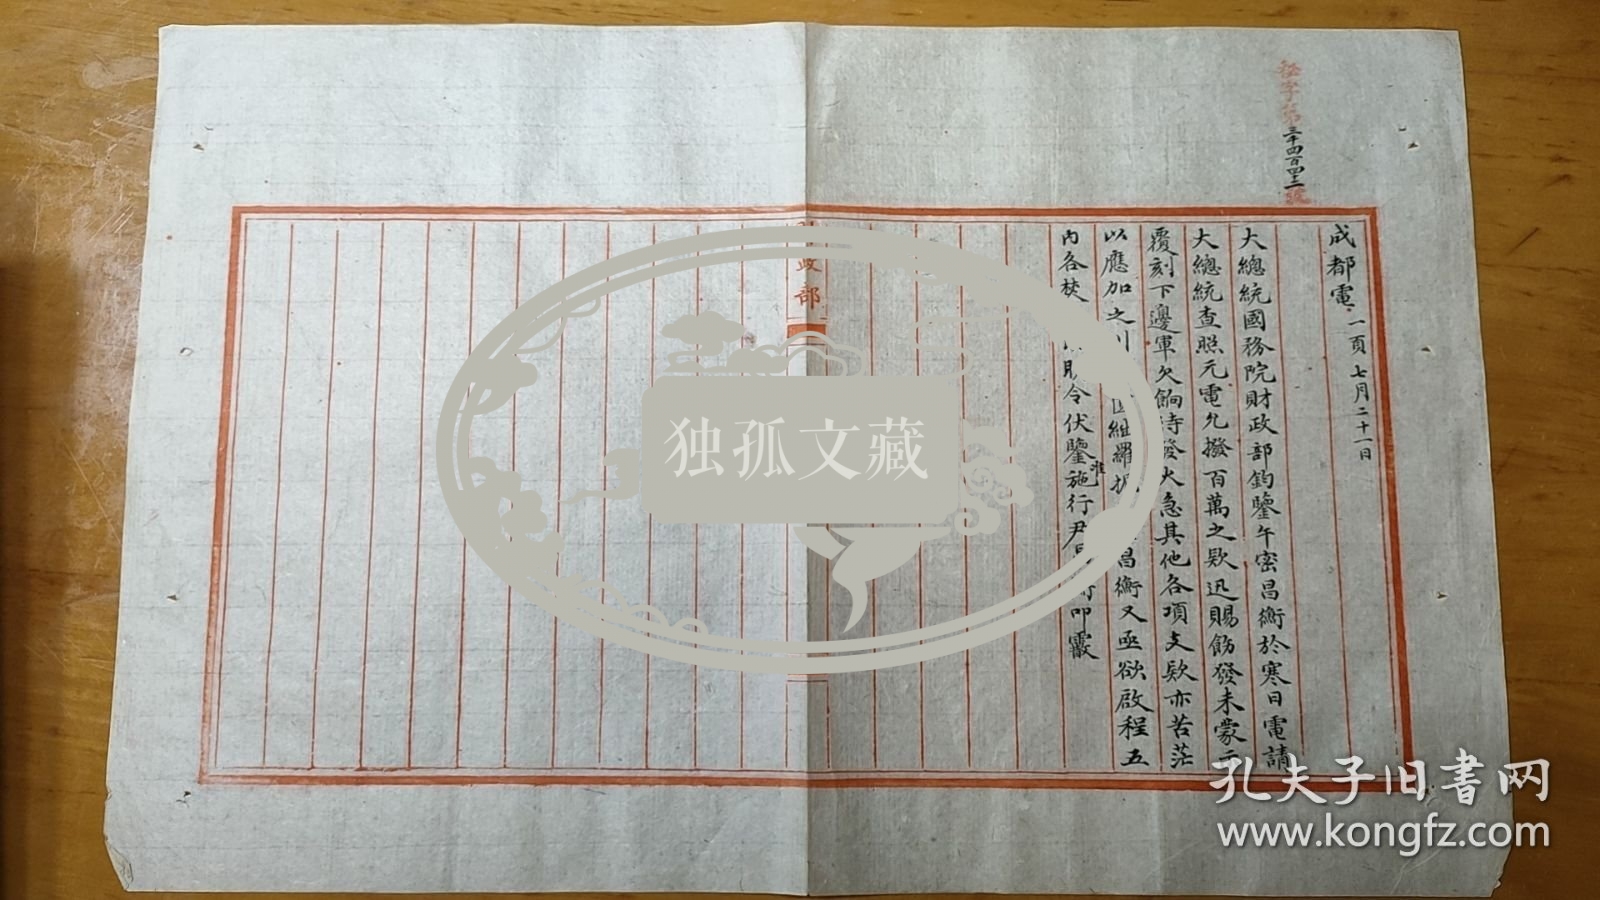 秘字第三千四百四十二號
成都電 一頁 七月二十一日
大總統國務院財政部鈞鑒午密昌衡於寒日電請
大總統查照元電允撥百萬之欵迅賜飭發未蒙示
覆刻下邊軍欠餉待發火急其他各項支欵亦苦茫
以應加之川 羅掘 昌衡又亟欲啟程五
內各焚 令伏鑒准施行尹昌衡叩霰
政部
独孤文藏
孔夫子旧书网
www.kongfz.com